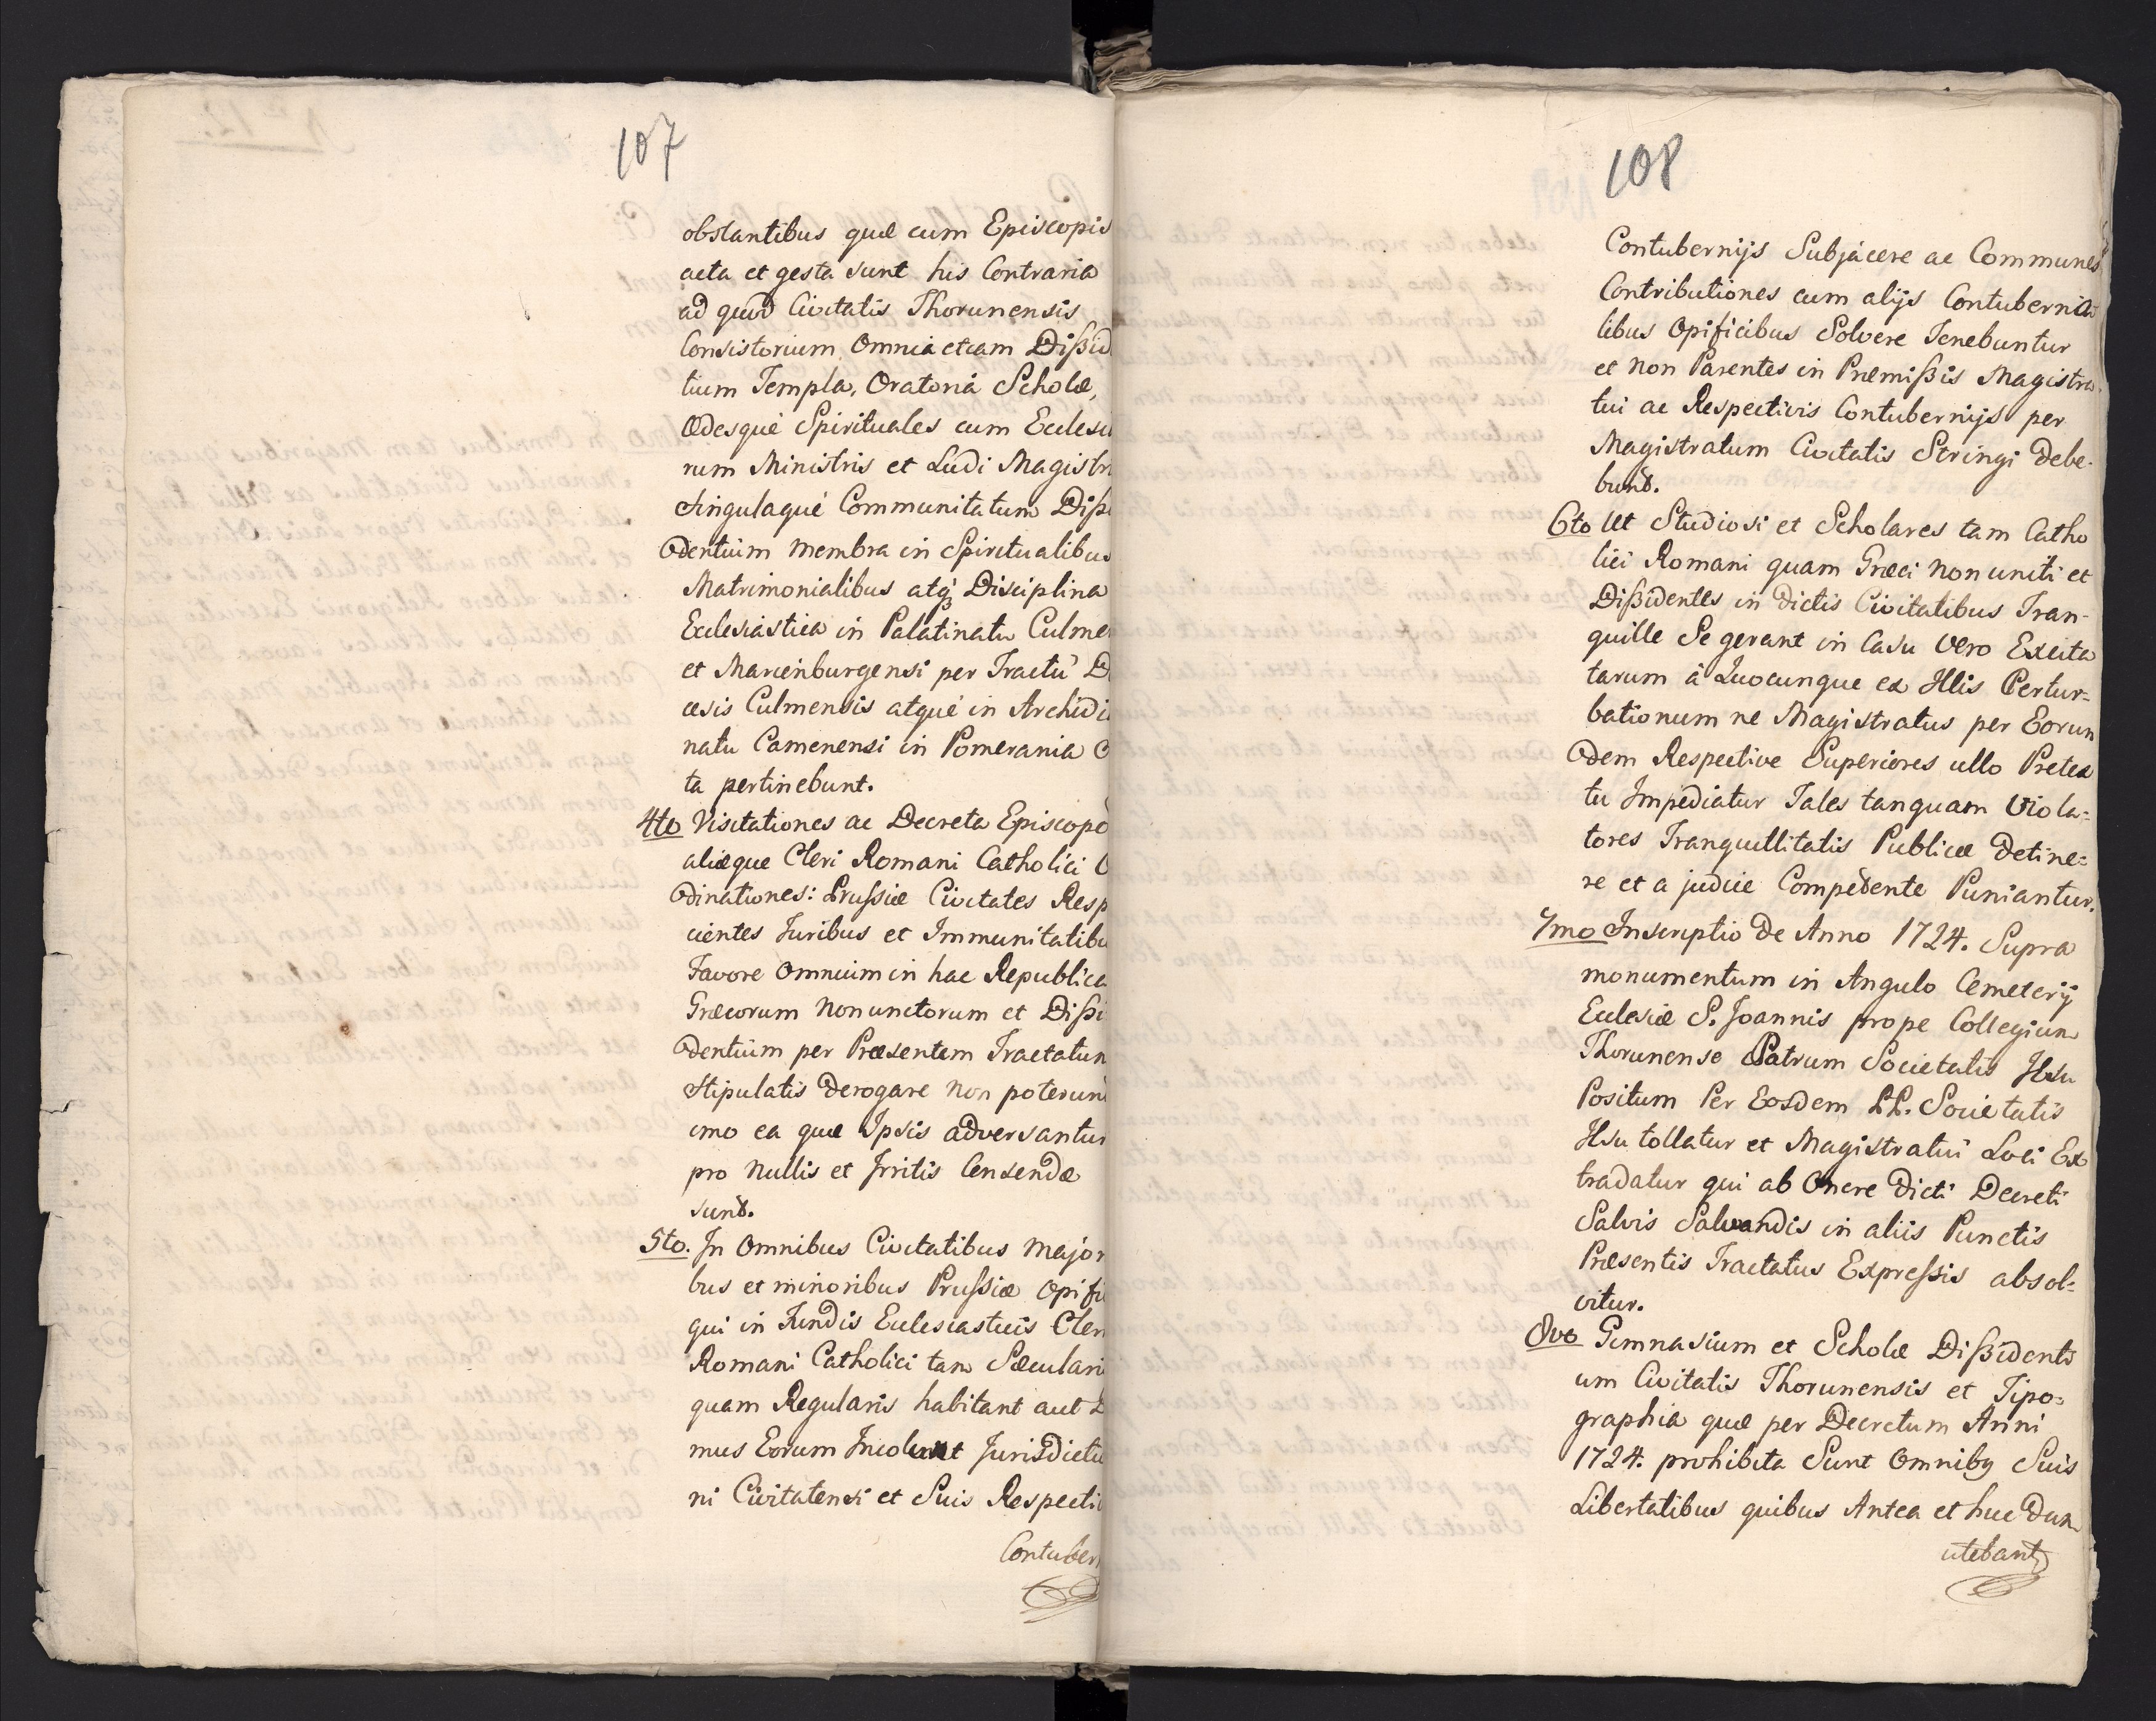 107
obstantibus quæ cum Episcopis
acta et gesta sunt his Contraria
ad quod Civitatis Thorunensis
Consistorium Omnia etiam Dißid
tium Templa, Oratoria Scholæ,
Ædesque Spirituales cum Ecclesia
rum Ministris et Ludi Magistri
Singulaque Communitatum Dißi
dentium membra in Spiritualibus
Matrimonialibus atq3 Disciplina
Ecclesiastica in Palatinatu Culme
et Marienburgensi per Tractu D
cesis Culmensis atque in Archidia
natu Camenensi in Pomerania C
ta pertinebunt.
4to Visitationes ac Decreta Episcopo
aliæque Cleri Romani Catholici O
dinationes: Prussiæ Civitates Resp
cientes Juribus et Immunitatibu
Favore Omnium in hac Republica
Græcorum Non unitorum et Dißi
dentium per Præsentem Tractatum
Stipulatis derogare non poterunt
imo ea quæ Ipsis adversantur
pro Nullis et Irritis Censenda
sunt.
5to. In Omnibus Civitatibus major
bus et minoribus Prussiæ Opifi
qui in Fundis Ecclesiasticis Cleri
Romani Catholici tam Sæcularis
quam Regularis habitant aut D
mus Eorum Incolunt Jurisdictio
ni Civitatensi et Suis Respectiv
Contuber
108
Contubernijs Subjacere ac Communes
Contributiones cum alijs Contubernia
libus Opificibus Solvere Tenebuntur
et Non Parentes in Præmißis Magistra
tui ac Respectivis Contubernijs per
Magistratum Civitatis Stringi debe-
bunt.
6to Ut Studiosi et Scholares tam Catho
lici Romani quam Græci Non uniti et
Dißidentes in dictis Civitatibus Tran-
quille Se gerant in Casu Vero Excita
tarum á Quocunque ex Illis Pertur=
bationum ne Magistratus per Eorun
dem Respective Superiores ullo Pretex
tu Impediatur Tales tanquam Viola=
tores Tranquillitatis Publicæ detine=
re et a judice Competente Puniantur.
7mo Inscriptio de Anno 1724. Supra
monumentum in Angulo Cemeterij
Ecclesiæ S. Joannis prope Collegium
Thorunense Patrum Societatis Jesu
Positum Per Eosdem PP. Societatis
Jesu tollatur et Magistratui Loci Ex
tradatur qui ab Onere dicti Decreti
Salvis Salvandis in aliis Punctis
Præsentis Tractatus Expressis absol=
vitur.
8vo Gimnasium et Scholæ Dißidenti
um Civitatis Thorunensis et Tipo=
graphia quæ per Decretum Anni
1724. prohibita Sunt Omnibg Suis
Libertatibus quibus Antea et huc dum
utebant